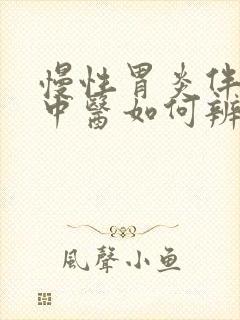 慢性胃炎伴
中醫如何辨
風聲小鱼